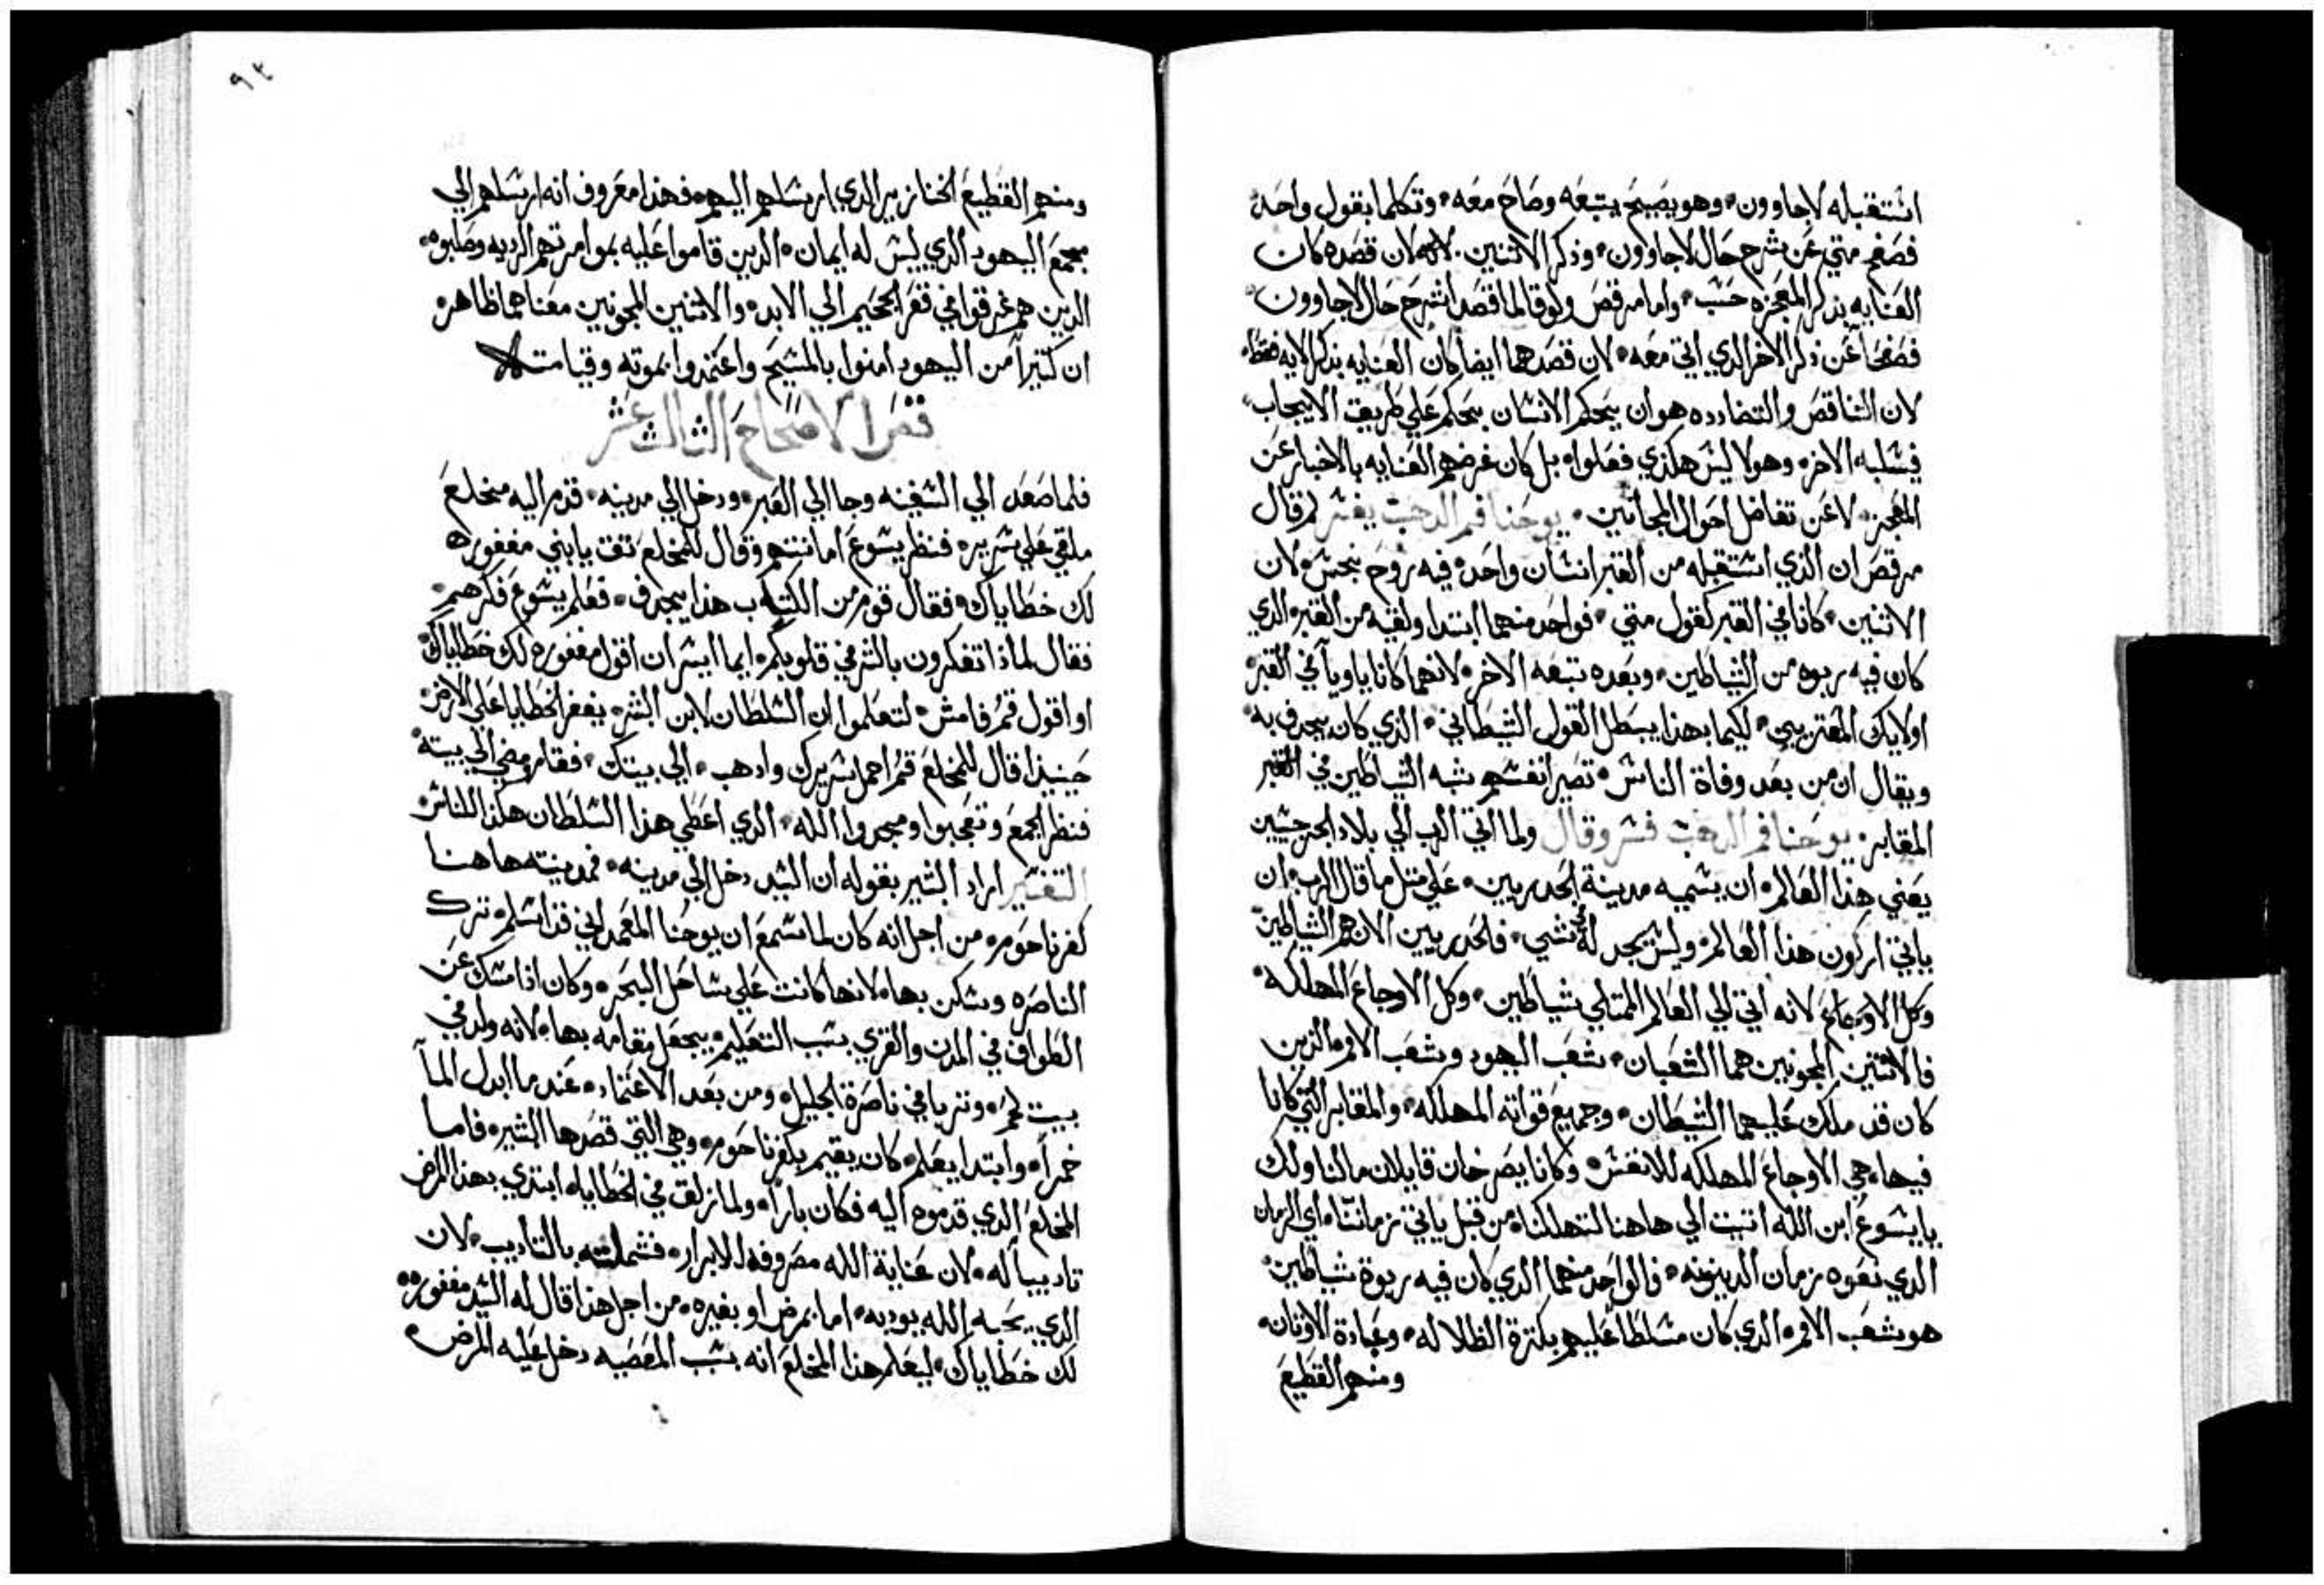 استقبله لاجاوون، وهو يصيح يتبعه وصاح معه، وتكلما بقول واحد
فصفح متي عن شرح حال لاجاوون، وذكر الاثنين. لان قصده كان
العنايه بذكر المعجزه حسب، واما مرقص ولوقا لما قصدا شرح حال لاجاوون
فصفحا عن ذكر الاخر الذي اتي معه، لان قصدهما ايضا كان العنايه بذكر الايه فقط،
لان التناقص والتضادده هو ان يحكم الانسان بحكم علي طريق الايجاب،
فيسلبه الاخر، وهولا ليس هكذي فعلوا، بل كان غرضهم العنايه بالاخبار عن
المعجز، لا عن تفاضل احوال المجانين، يوحنا فم الدهب يفسر ثم قال
مرقص ان الذي استقبله من القبر انسان واحد، فيه روح نجس، لان
الاثنين، كانا في القبر كقول متي، فواحد منهما ابتدا ولقيه من القبر، الذي
كان فيه ربوه من الشياطين، وبعده تبعه الاخر، لانهما كانا ياويا في القبر،
اولايك المعتريين، لكيما بهذا يبطل القول الشيطاني، الذي كان يجدف به،
ويقال ان من بعد وفاة الناس، تصير انفسهم شبه الشياطين في القبر
المقابر، يوحنا فم الدهب فسر وقال ولما اتي الرب الي بلاد الجرجسيين
يعني هذا العالم، ان يسميه مدينة الجدريين، علي متل ما قال الرب، ان
ياتي اركون هذا العالم، وليس يجد له في شي، فالجدريين الان هم الشياطين
وكل الاوجاع، لانه اتي الي العالم الممتلي شياطين، وكل الاوجاع المهلكه،
فالاثنين المجونيين هما الشعبان، شعب اليهود وشعب الامم، الذين
كان قد ملك عليهما الشيطان، وجميع قواته المهلكه، والمقابر التي كانا
فيها، هي الاوجاع المهلكه للانفس، وكانا يصرخان قايلان ما لنا ولك
يا يسوع ابن الله، اتيت الي هاهنا لتهلكنا، من قبل ياتي زماننا، اي الزمان
الذي نعوه زمان الدينونه، فالواحد منهما الذي كان فيه ربوة شياطين،
هو شعب الامم، الذي كان مسلطا عليهم بكترة الظلاله، وعبادة الاوتان،
ومنهم القطيع
٩٢
ومنهم القطيع الخنازير الذي ارسلهم اليهم، فهذا معروف انه ارسلهم الي
مجمع اليهود الذي ليس له ايمان، الذين قاموا عليه بموامرتهم الرديه وصلبوه،
الذين هم غرقوا في قعر الجحيم الي الابد، والاثنين المجونيين معناهما ظاهر،
ان كثيرا من اليهود امنوا بالمسيح واعتمدوا بموته وقيامته
نقرا الاصحاح الثالث عشر
فلما صعد الي السفينه وجا الي العبر، ودخل الي مدينه، قدم اليه مخلع
ملقي علي سرير، فنظر يسوع امانتهم وقال للمخلع تق يا بني مغفوره
لك خطاياك، فقال قوم من الكتاب هذا يجدف، فعلم يسوع فكرهم،
فقال لماذا تفكرون بالشر في قلوبكم، ايما ايسر ان اقول مغفوره لك خطاياك،
او اقول قم فامش، لتعلموا ان السلطان لابن البشر، يغفر الخطايا علي الارض،
حينيذا قال للمخلع قم احمل سريرك وادهب، الي بيتك، فقام ومضي الي بيته،
فنظر الجمع وتعجبوا ومجدوا الله، الذي اعطي هذا السلطان هكذا للناس،
التفسير اراد البشير بقوله ان السيد دخل الي مدينه، فمدينته هاهنا
كفرناحوم، من اجل انه كان لما سمع ان يوحنا المعمداني قد اسلم، ترك
الناصره وسكن بها، لانها كانت علي ساحل البحر، وكان اذا امسك عن
الطواف في المدن والقري بسبب التعليم، يجعل مقامه بها، لانه ولد في
بيت لحم، وتربا في ناصرة الجليل، ومن بعد الاعتماد، عندما ابدل المآ
خمرا، وابتدا يعلم، كان يقيم بكفرناحوم، وهي التي قصدها البشير، فاما
المخلع الذي قدموه اليه فكان بارا، ولما زلق في الخطايا، ابتدي بهذا المرض
تاديبا له، لان عناية الله مصروفه للابرار، فشملته بالتاديب، لان
الذي يحبه الله يوديه، اما بمرض او بغيره، من اجل هذا قال له السيد مغفوره
لك خطاياك، ليعلم هذا المخلع انه بسبب المعصيه دخل عليه المرض،